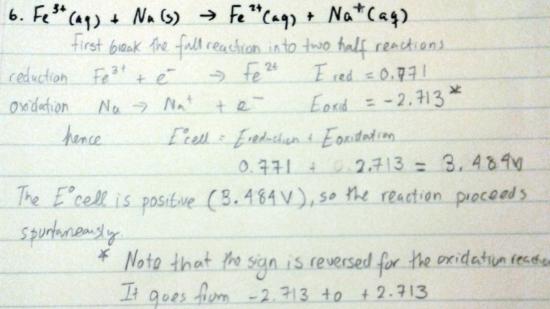 6. Fe³⁺(aq) + Na(s) → Fe²⁺(aq) + Na⁺(aq)
First break the full reaction into two half reactions
reduction Fe³⁺ + e⁻ → Fe²⁺ E red = 0.771
oxidation Na → Na⁺ + e⁻ Eoxid = -2.713*
hence E°cell = Ereduction + Eoxidation
0.771 + 2.713 = 3.484V
The E°cell is positive (3.484V), so the reaction proceeds
spontaneously.
* Note that the sign is reversed for the oxidation reaction
It goes from -2.713 to +2.713